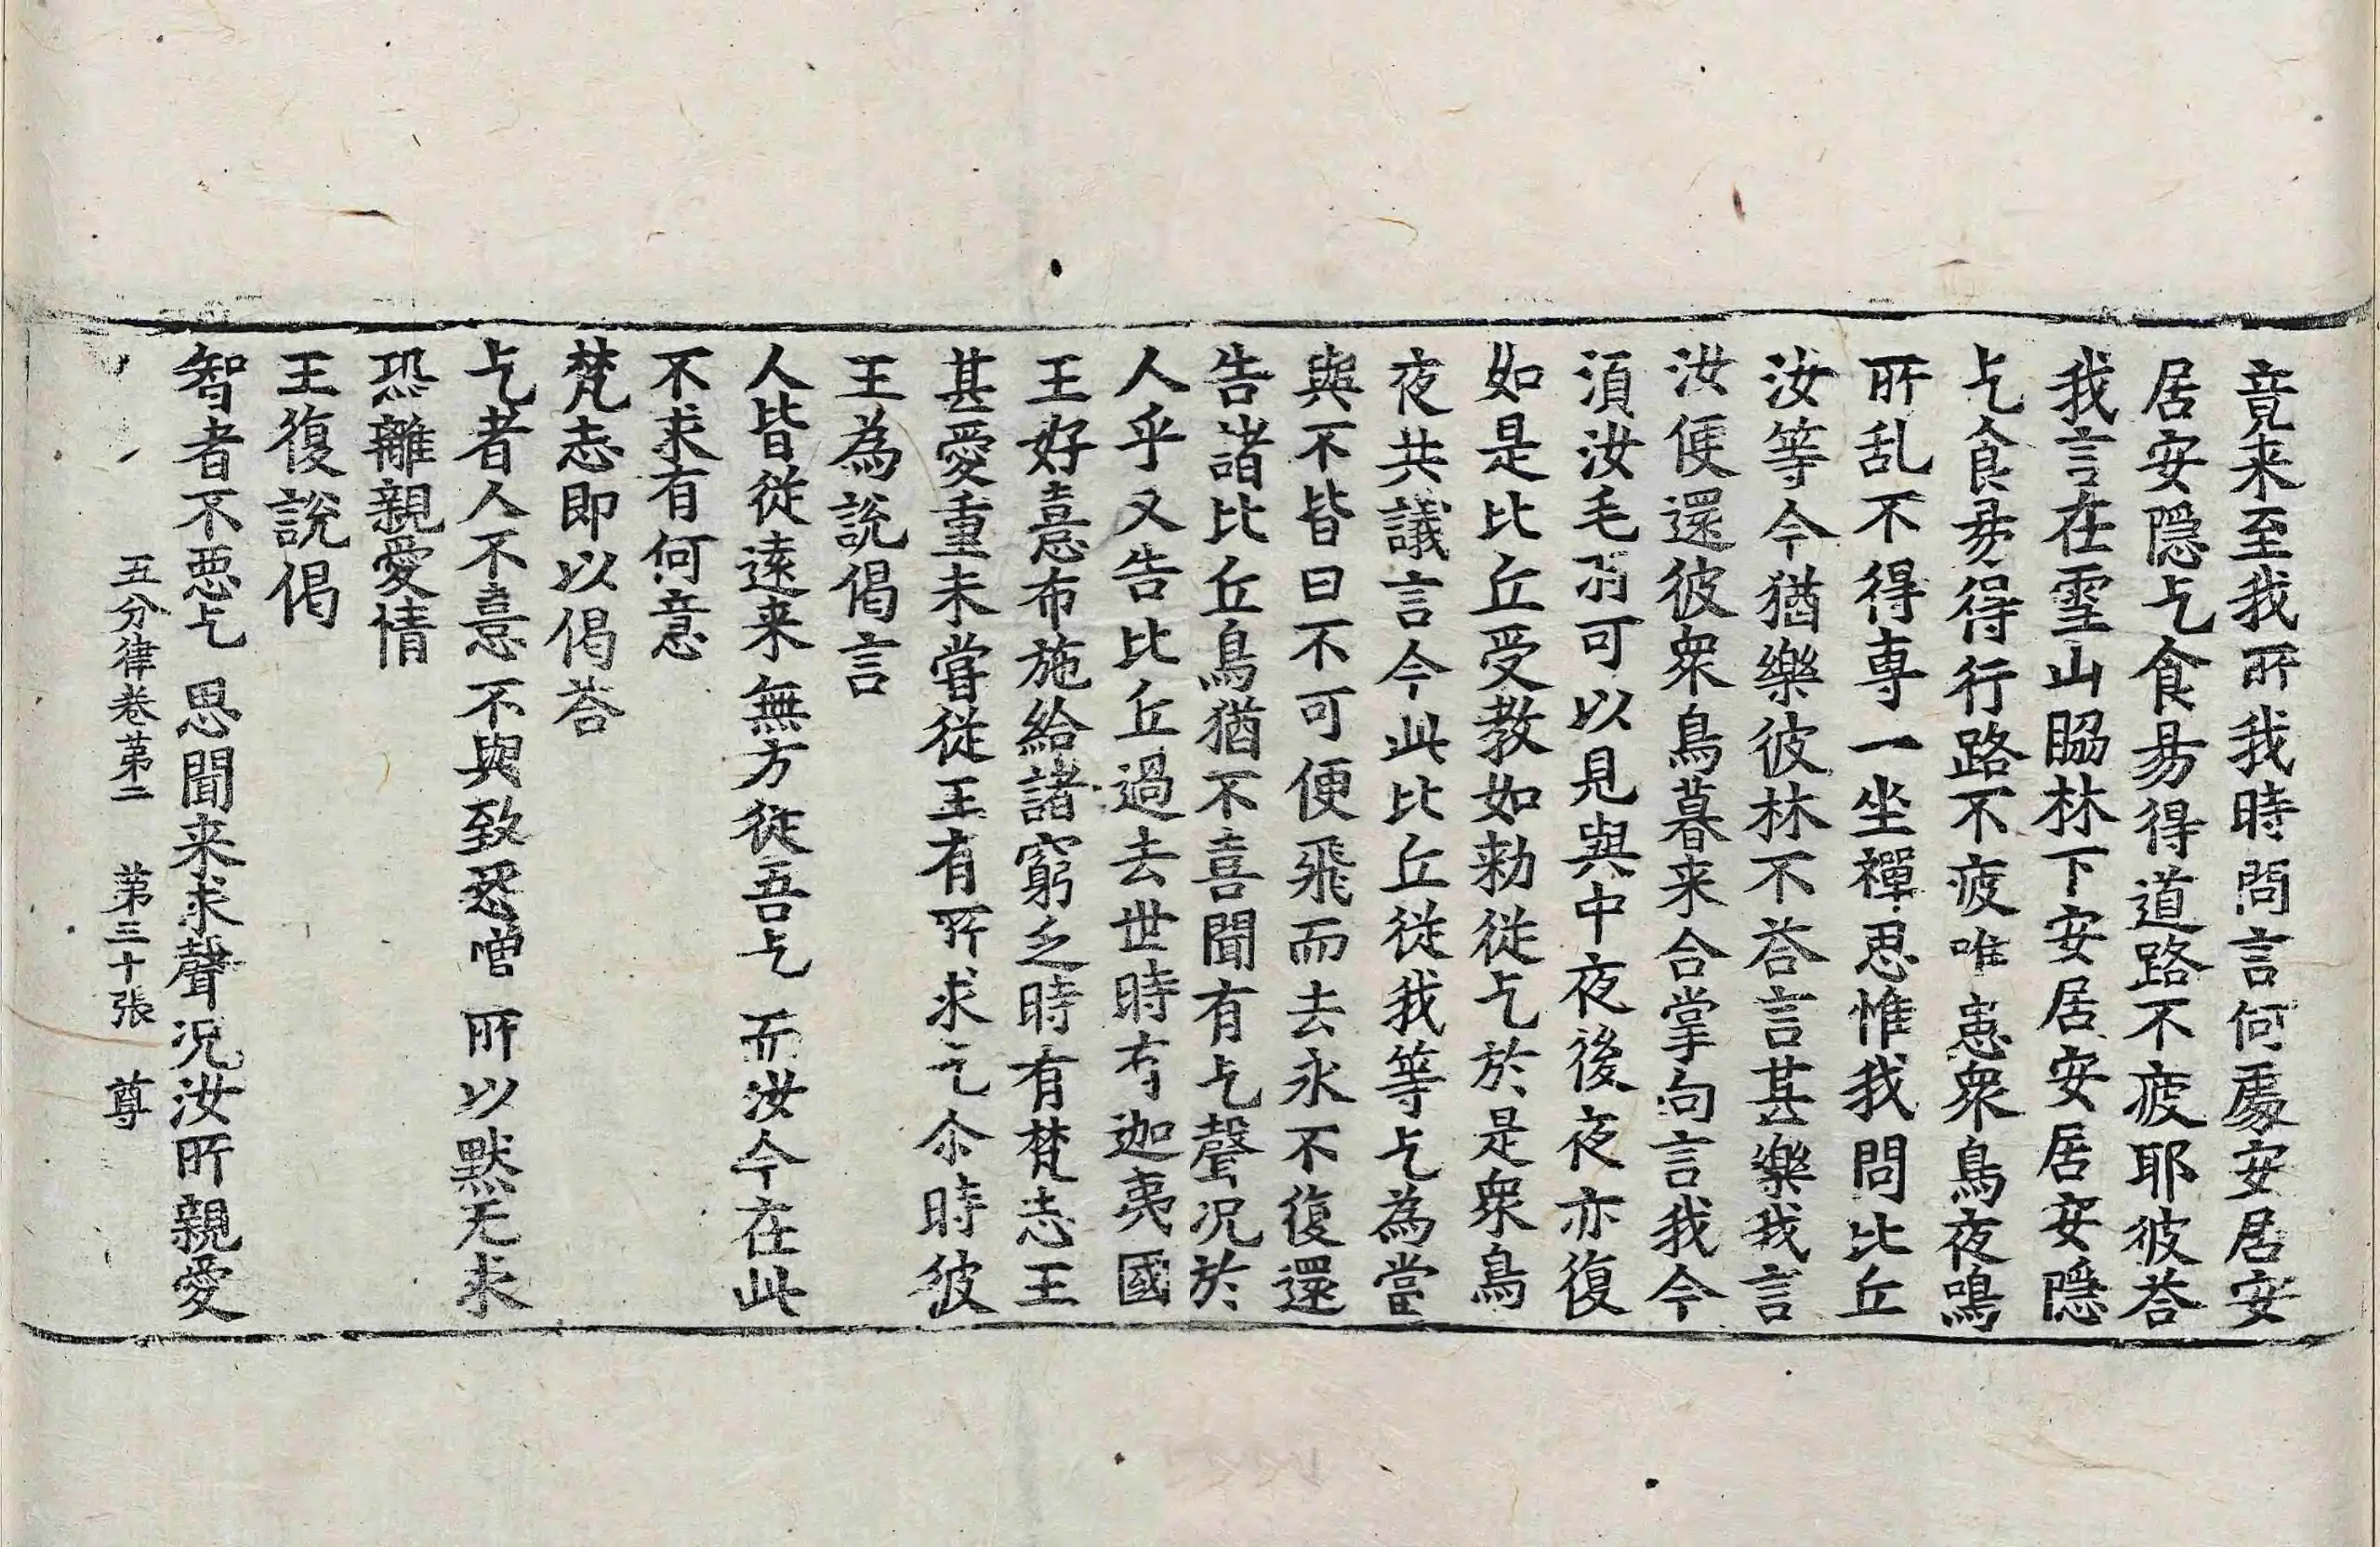 竟来至我所我時問言何處安居安
居安隱乞食易得道路不疲耶彼荅
我言在雪山脇林下安居安居安隱
乞食易得行路不疲唯患衆鳥夜鳴
所乱不得専一坐禪思惟我問比丘
汝等今猶樂彼林不荅言甚樂我言
汝便還彼衆鳥暮来合掌向言我今
湏汝毛羽可以見與中夜後夜亦復
如是比丘受教如勑従乞於是衆鳥
夜共議言今此比丘従我等乞為當
與不皆曰不可便飛而去永不復還
告諸比丘鳥猶不喜聞有乞聲况於
人乎又告比丘過去世時有迦夷國
王好憙布施給諸窮乏時有梵志王
甚愛重未甞従王有所求乞尒時彼
王為說偈言
人皆従遠来 無方従吾乞 而汝今在此
不求有何意
梵志即以偈荅
乞者人不憙 不與致怨憎 所以默无求
恐離親愛情
王復說偈
智者不惡乞 思聞来求聲 况汝所親愛
五分律卷第二 第三十張 尊